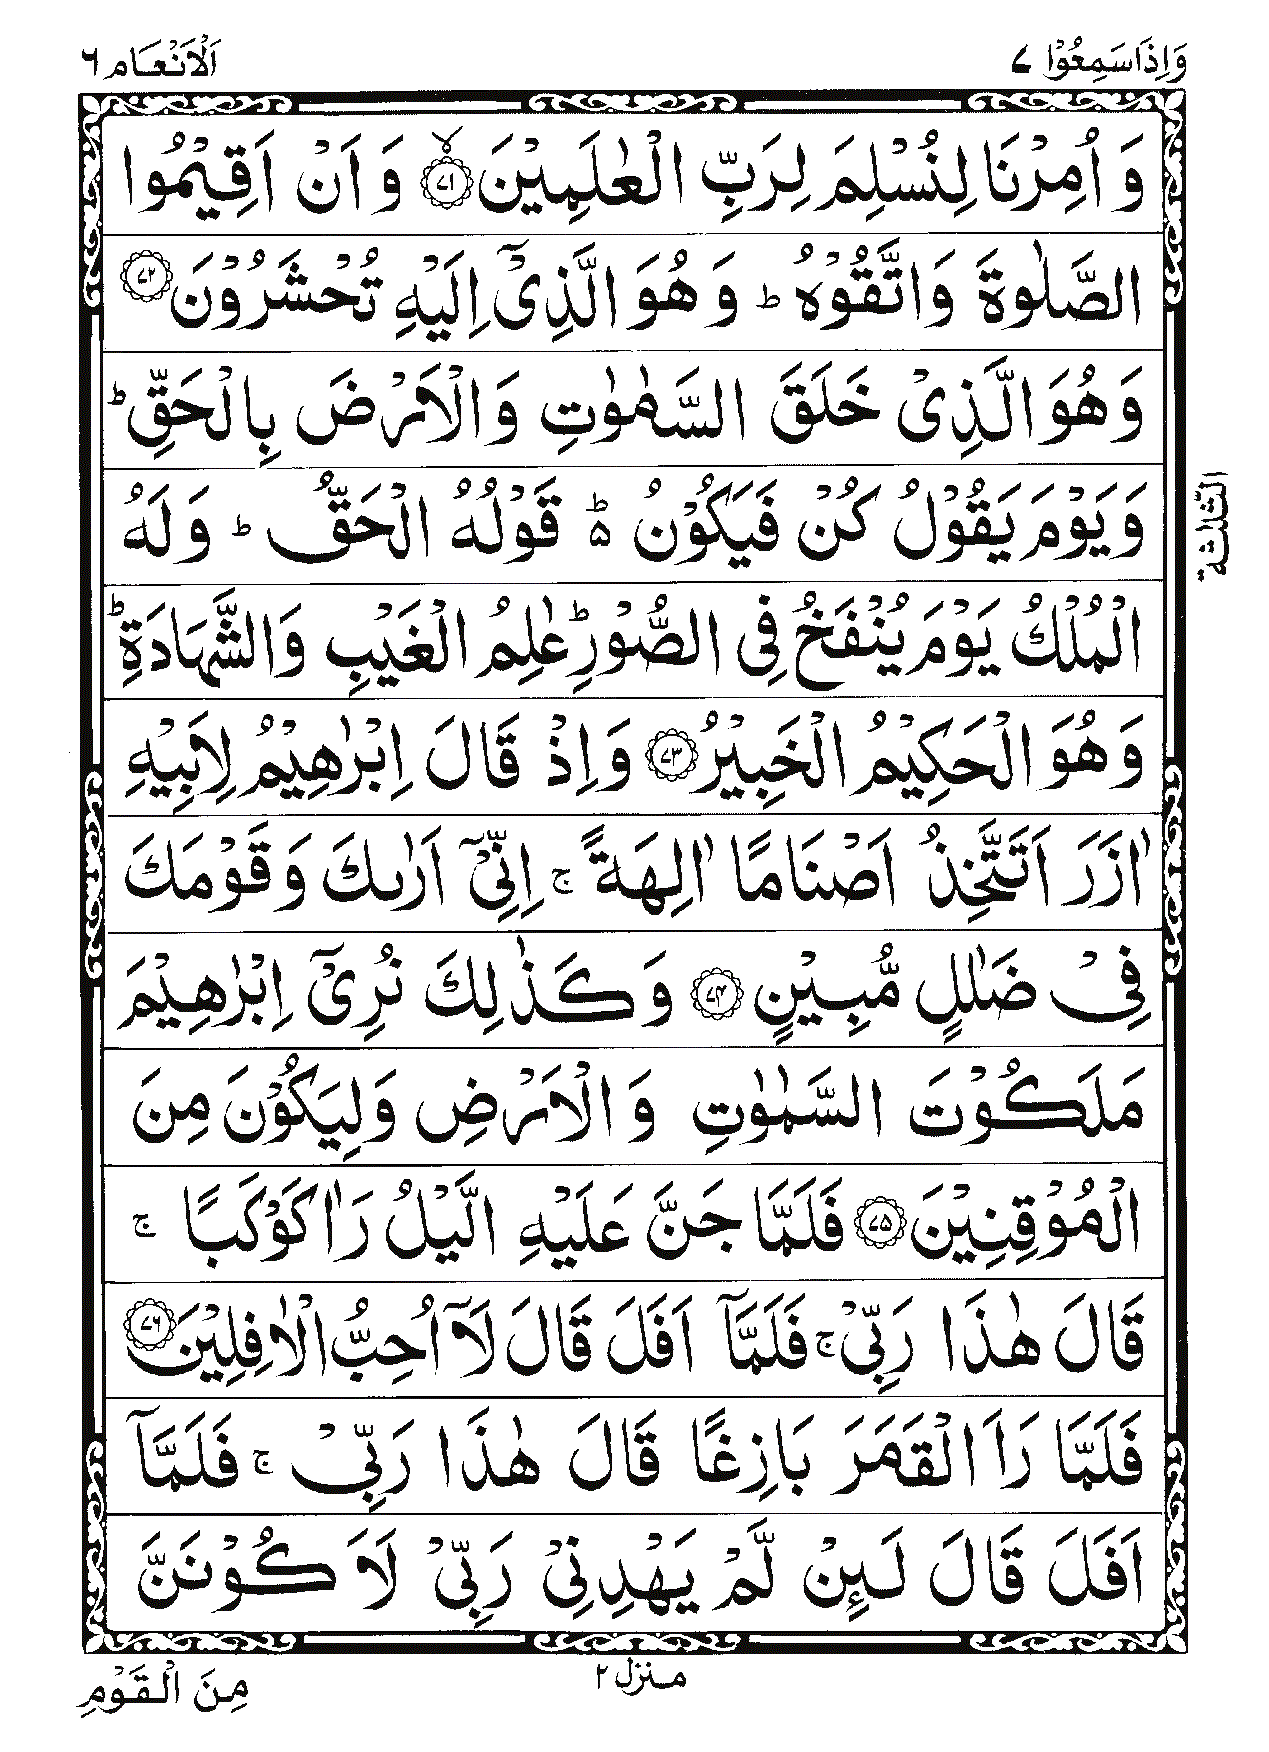 وَاِذَاسَمِعُوْا ٧
اَلْاَنْعَام ٦
وَ اُمِرْنَا لِنُسْلِمَ لِرَبِّ الْعٰلَمِيْنَ ۙ﴿٧١﴾ وَ اَنْ اَقِيْمُوا
الصَّلٰوةَ وَاتَّقُوْهُ ؕ وَ هُوَ الَّذِیْۤ اِلَيْهِ تُحْشَرُوْنَ ﴿٧٢﴾
وَ هُوَ الَّذِیْ خَلَقَ السَّمٰوٰتِ وَالْاَرْضَ بِالْحَقِّ ؕ
وَ يَوْمَ يَقُوْلُ كُنْ فَيَكُوْنُ ؕ۬ قَوْلُهُ الْحَقُّ ؕ وَ لَهُ
الْمُلْكُ يَوْمَ يُنْفَخُ فِی الصُّوْرِ ؕ عٰلِمُ الْغَيْبِ وَالشَّهَادَةِ ؕ
وَ هُوَ الْحَكِيْمُ الْخَبِيْرُ ﴿٧٣﴾ وَ اِذْ قَالَ اِبْرٰهِيْمُ لِاَبِيْهِ
اٰزَرَ اَتَتَّخِذُ اَصْنَامًا اٰلِهَةً ۚ اِنِّیْۤ اَرٰىكَ وَ قَوْمَكَ
فِیْ ضَلٰلٍ مُّبِيْنٍ ﴿٧٤﴾ وَ كَذٰلِكَ نُرِیْۤ اِبْرٰهِيْمَ
مَلَكُوْتَ السَّمٰوٰتِ وَ الْاَرْضِ وَلِيَكُوْنَ مِنَ
الْمُوْقِنِيْنَ ﴿٧٥﴾ فَلَمَّا جَنَّ عَلَيْهِ الَّيْلُ رَاٰ كَوْكَبًا ۚ
قَالَ هٰذَا رَبِّیْ ۚ فَلَمَّاۤ اَفَلَ قَالَ لَاۤ اُحِبُّ الْاٰفِلِيْنَ ﴿٧٦﴾
فَلَمَّا رَاَ الْقَمَرَ بَازِغًا قَالَ هٰذَا رَبِّیْ ۚ فَلَمَّاۤ
اَفَلَ قَالَ لَئِنْ لَّمْ يَهْدِنِیْ رَبِّیْ لَاَ كُوْنَنَّ
الثلٰثة
منزل ٢
مِنَ الْقَوْمِ